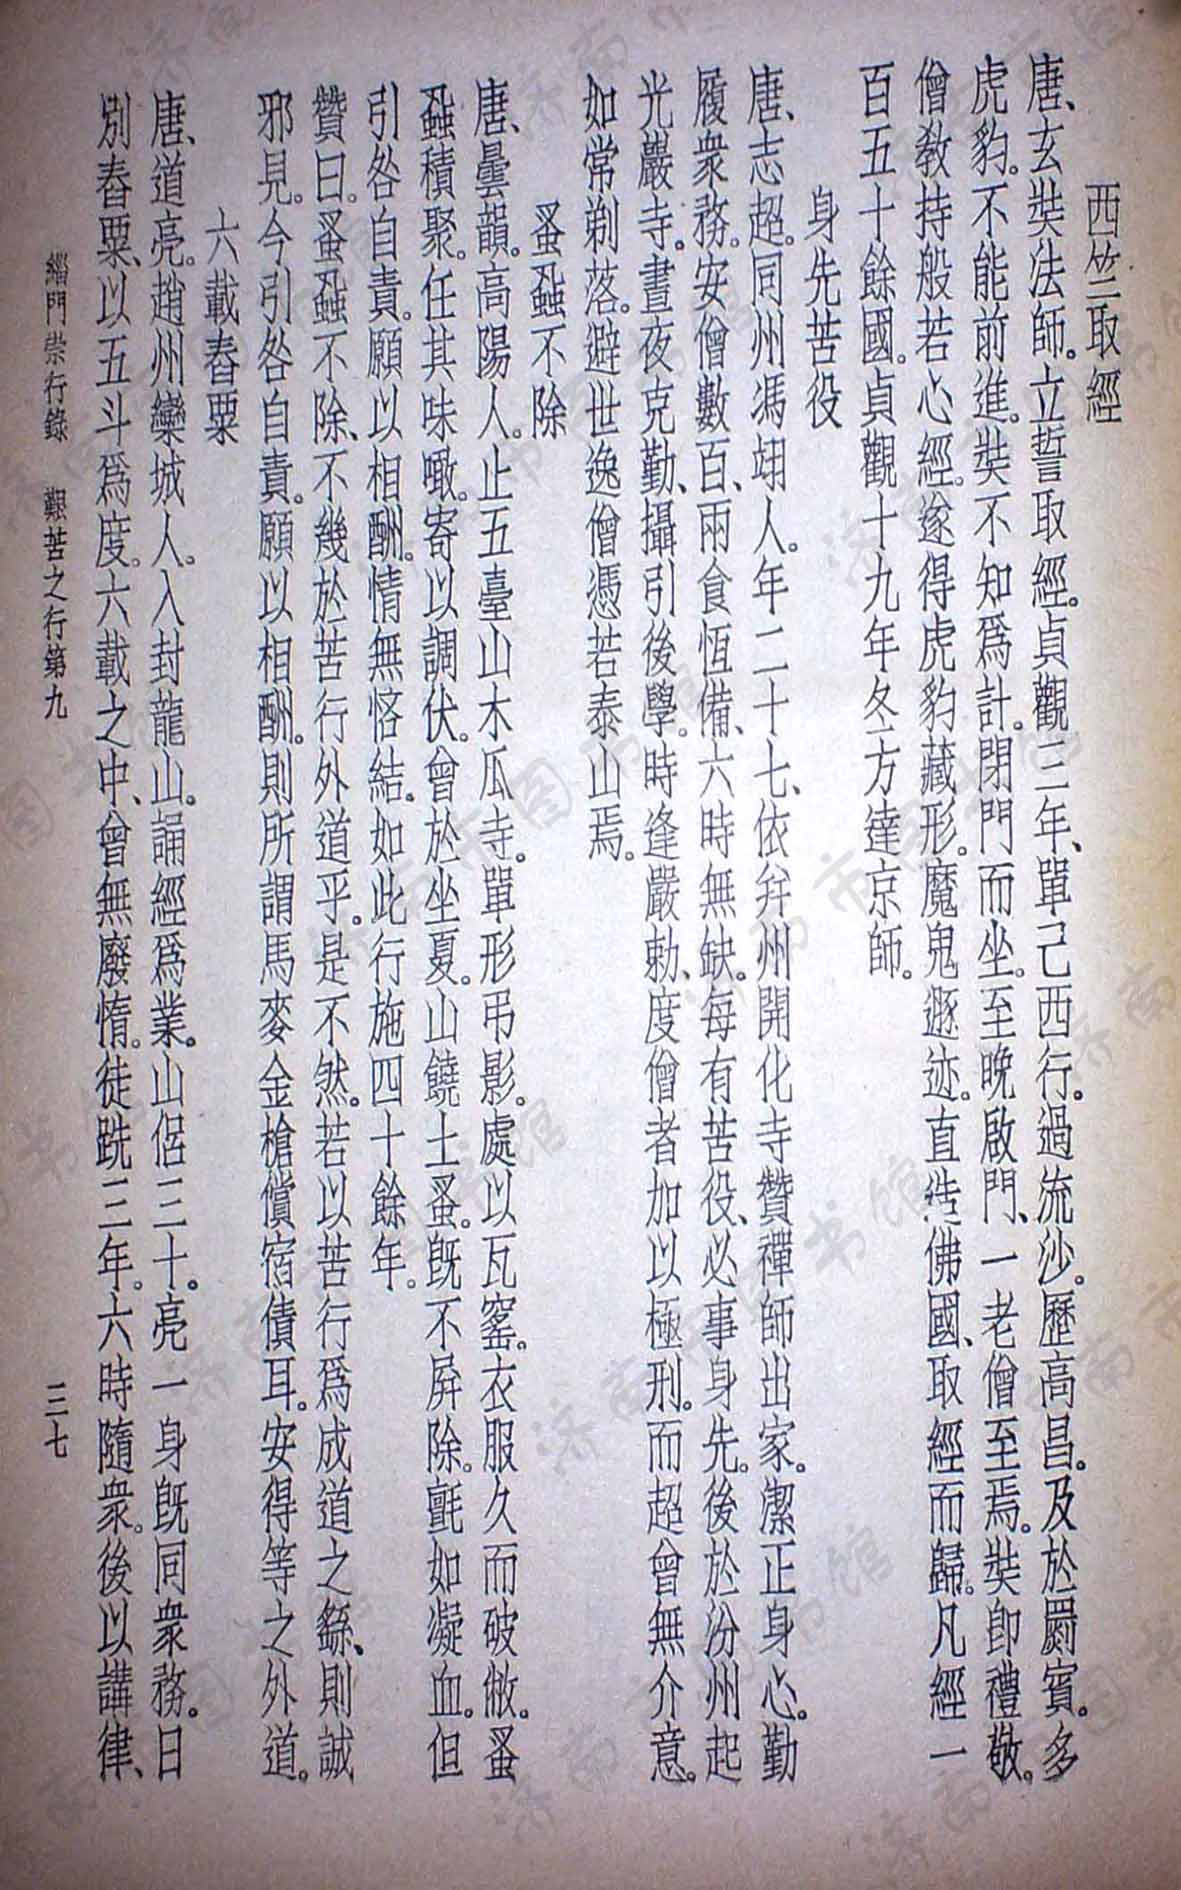 西竺取經
唐、玄奘法師。立誓取經。貞觀三年、單己西行。過流沙。歷高昌。及於罽賓。多
虎豹。不能前進。奘不知爲計。閉門而坐。至晚啟門、一老僧至焉。奘卽禮敬。
僧教持般若心經。遂得虎豹藏形。魔鬼遯迹。直造佛國、取經而歸。凡經一
百五十餘國。貞觀十九年冬方達京師。
身先苦役
唐、志超。同州馮翊人。年二十七、依并州開化寺贊禪師出家。潔正身心。勤
履衆務。安僧數百、兩食恆備、六時無缺。每有苦役、必事身先。後於汾州起
光嚴寺。晝夜克勤、攝引後學。時逢嚴勅、度僧者加以極刑。而超曾無介意。
如常剃落。避世逸僧憑若泰山焉。
蚤蝨不除
唐、曇韻。高陽人。止五臺山木瓜寺。單形弔影。處以瓦窰。衣服久而破敝。蚤
蝨積聚。任其味噉。寄以調伏。曾於坐夏。山饒土蚤。旣不屏除。氈如凝血。但
引咎自責。願以相酬。情無悋結。如此行施四十餘年。
贊曰。蚤蝨不除、不幾於苦行外道乎。是不然。若以苦行爲成道之繇、則誠
邪見。今引咎自責。願以相酬。則所謂馬麥金槍償宿債耳。安得等之外道。
六載舂粟
唐、道亮。趙州欒城人。入封龍山。誦經爲業。山侶三十。亮一身旣同衆務。日
別舂粟、以五斗爲度。六載之中、曾無廢惰。徒跣三年。六時隨衆。後以講律、
緇門崇行錄 艱苦之行第九 三七
济南市图书馆